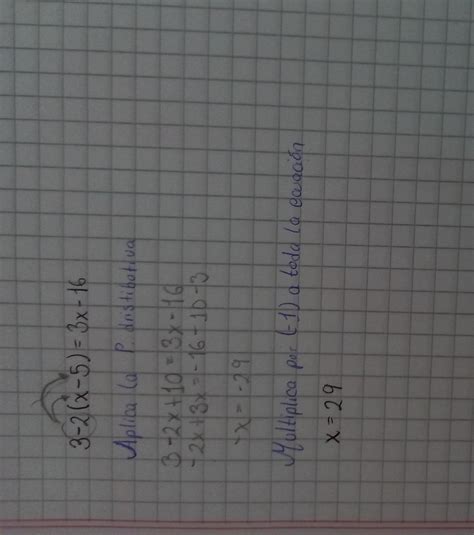 3-2(x-5)=3x-16
Aplica la P. distributiva
3-2x+10=3x-16
-2x+3x=-16-10-3
-x=-29
Multiplica por (-1) a toda la ecuación
x=29